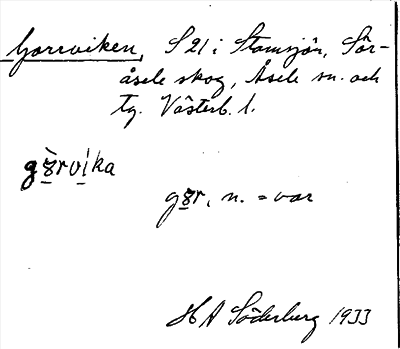 Gorrviken, S 21 i Stamsjön, Sör-
åsele skog, Åsele sn. och
tg. Västerb. l.
gȣ̀rvi̱ka
gȣr, n. = var
H A Söderberg 1933